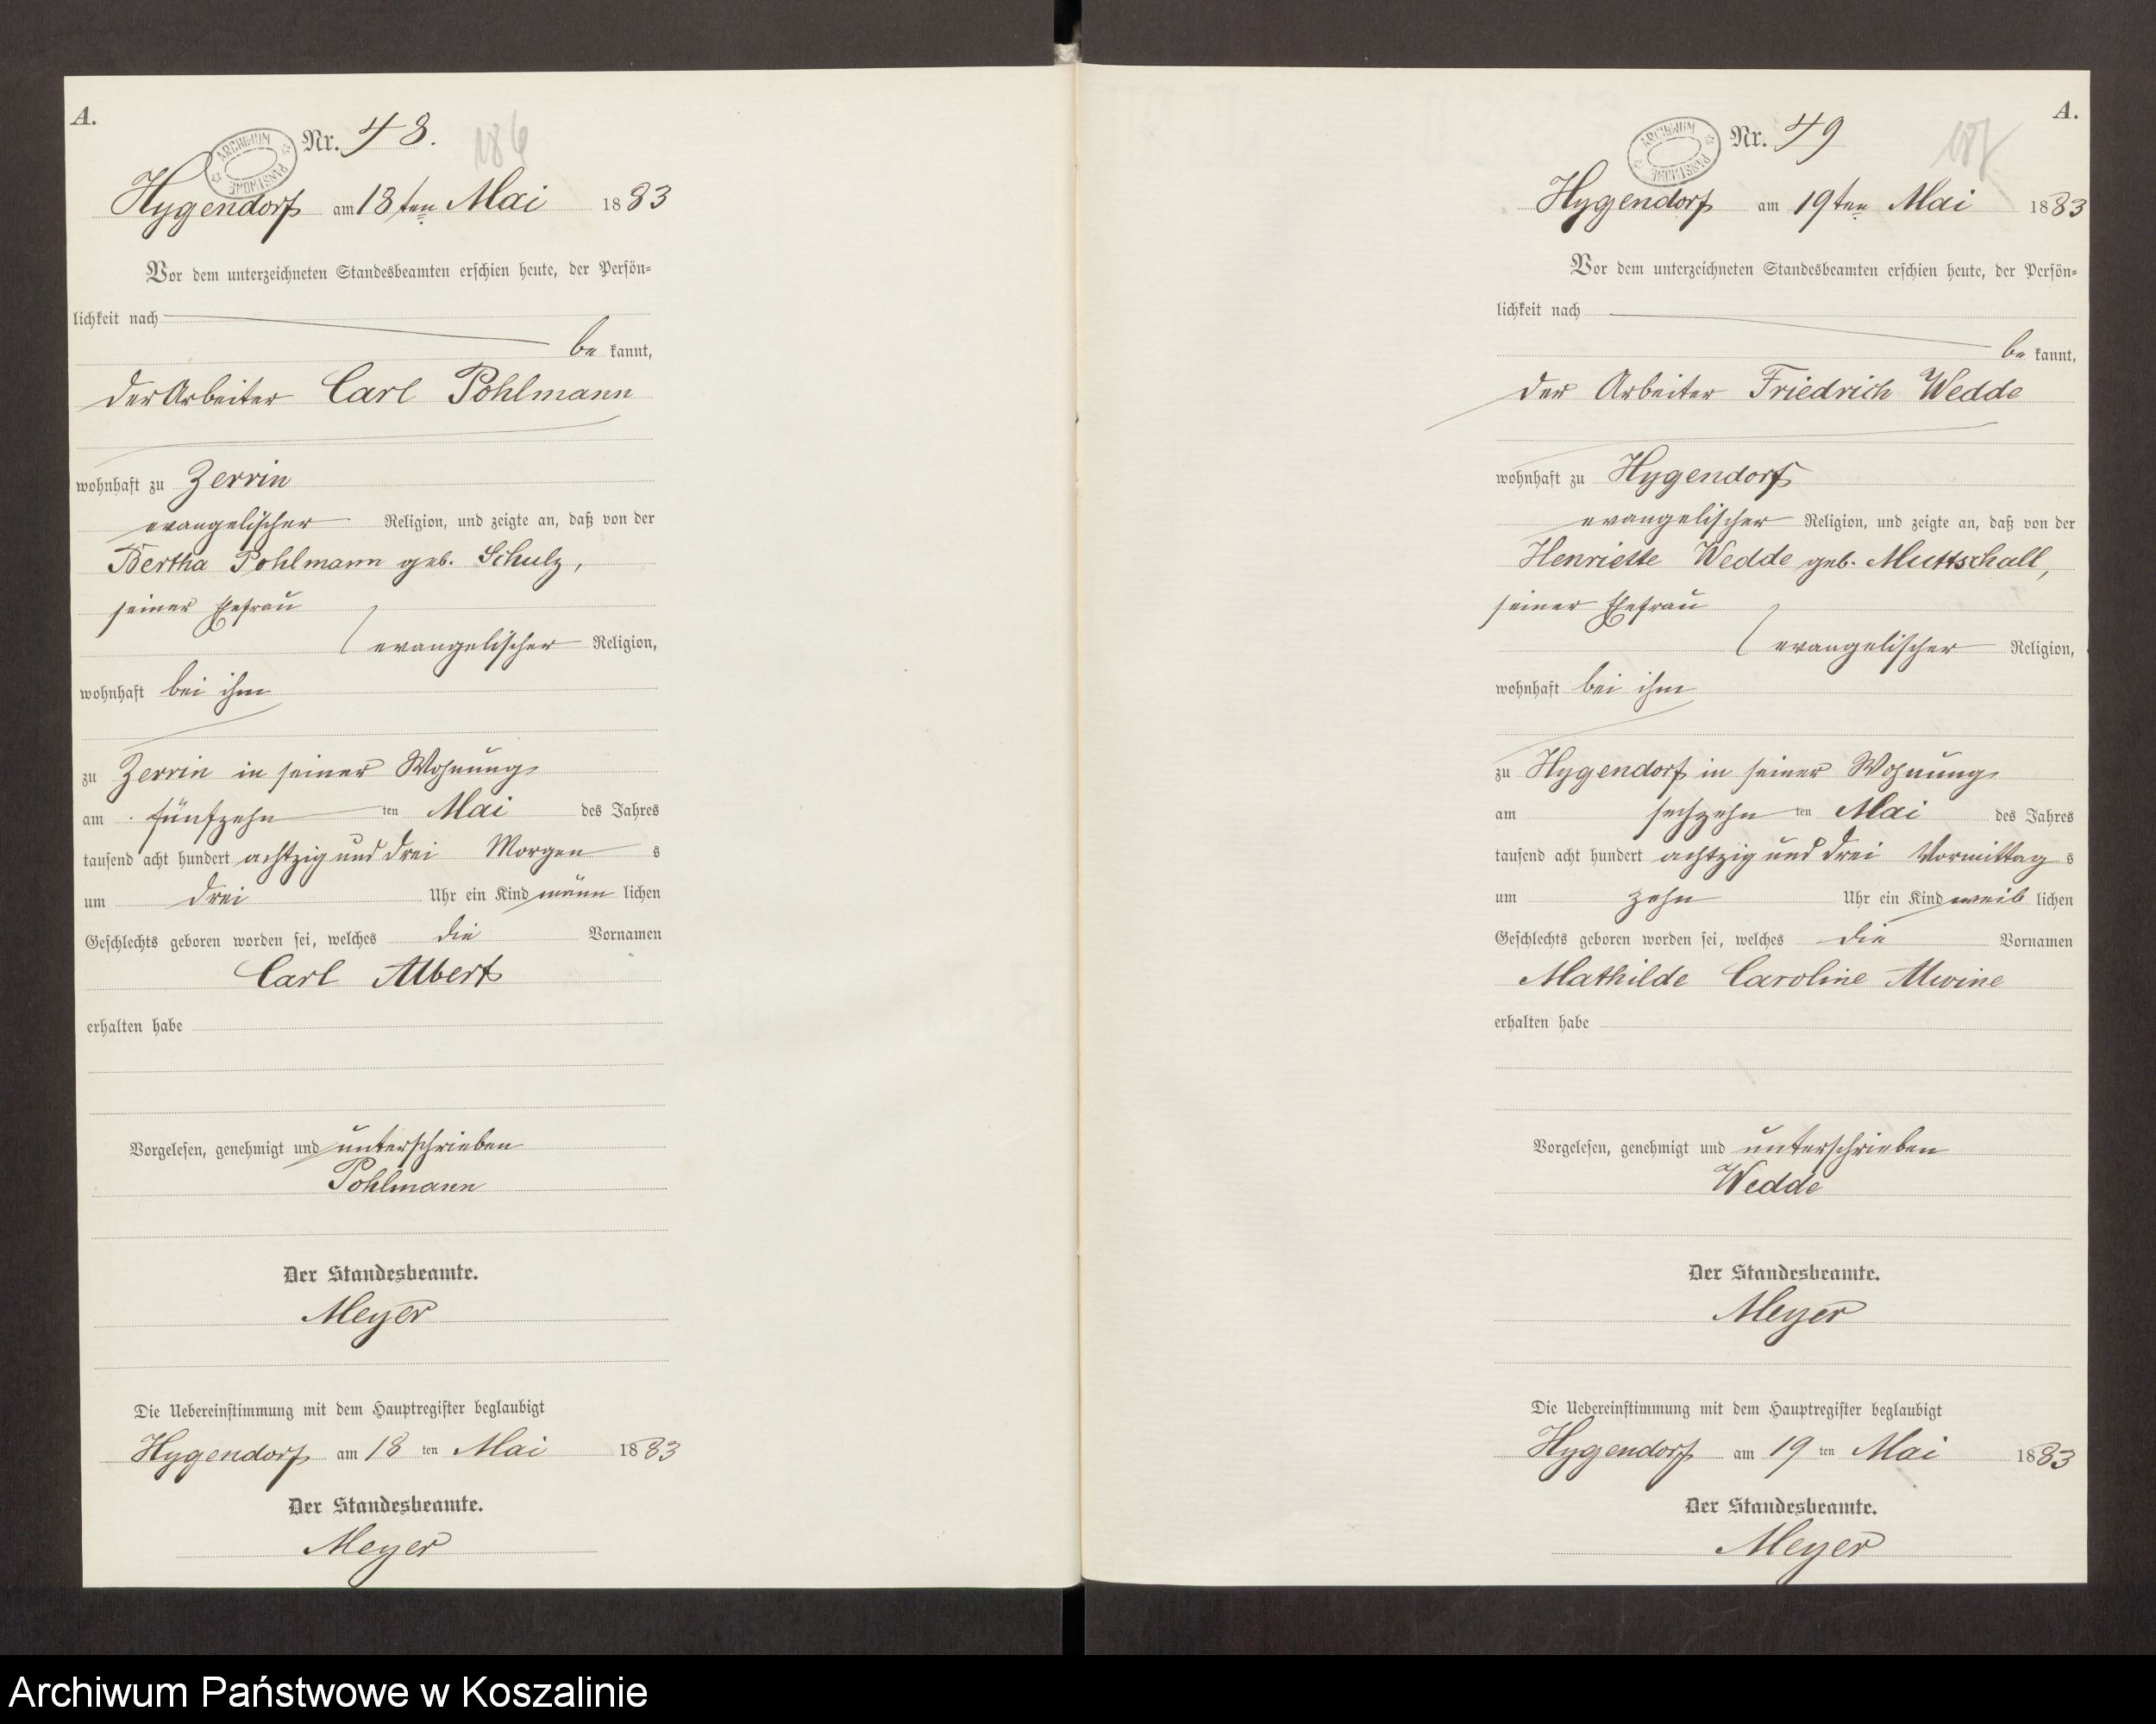 A.
ARCHIWUM PAŃSTWOWE
Nr. 48.
186
Hygendorf am 18ten Mai 1883
Vor dem unterzeichneten Standesbeamten erschien heute, der Persön-
lichkeit nach
be kannt,
der Arbeiter Carl Pohlmann
wohnhaft zu Zerrin
evangelischer Religion, und zeigte an, daß von der
Bertha Pohlmann geb. Schulz,
seiner Ehefrau
evangelischer Religion,
wohnhaft bei ihm
zu Zerrin in seiner Wohnung
am fünfzehn ten Mai des Jahres
tausend acht hundert achtzig und drei Morgen s
um drei Uhr ein Kind männ lichen
Geschlechts geboren worden sei, welches die Vornamen
Carl Albert
erhalten habe
Vorgelesen, genehmigt und unterschrieben
Pohlmann
Der Standesbeamte.
Meyer
Die Uebereinstimmung mit dem Hauptregister beglaubigt
Hygendorf am 18 ten Mai 1883
Der Standesbeamte.
Meyer
A.
ARCHIWUM PAŃSTWOWE
Nr. 49
187
Hygendorf am 19ten Mai 1883
Vor dem unterzeichneten Standesbeamten erschien heute, der Persön-
lichkeit nach
be kannt,
der Arbeiter Friedrich Wedde
wohnhaft zu Hygendorf
evangelischer Religion, und zeigte an, daß von der
Henriette Wedde geb. Muttschall,
seiner Ehefrau
evangelischer Religion,
wohnhaft bei ihm
zu Hygendorf in seiner Wohnung
am sechzehn ten Mai des Jahres
tausend acht hundert achtzig und drei Vormittag s
um zehn Uhr ein Kind weib lichen
Geschlechts geboren worden sei, welches die Vornamen
Mathilde Caroline Alwine
erhalten habe
Vorgelesen, genehmigt und unterschrieben
Wedde
Der Standesbeamte.
Meyer
Die Uebereinstimmung mit dem Hauptregister beglaubigt
Hygendorf am 19 ten Mai 1883
Der Standesbeamte.
Meyer
Archiwum Państwowe w Koszalinie